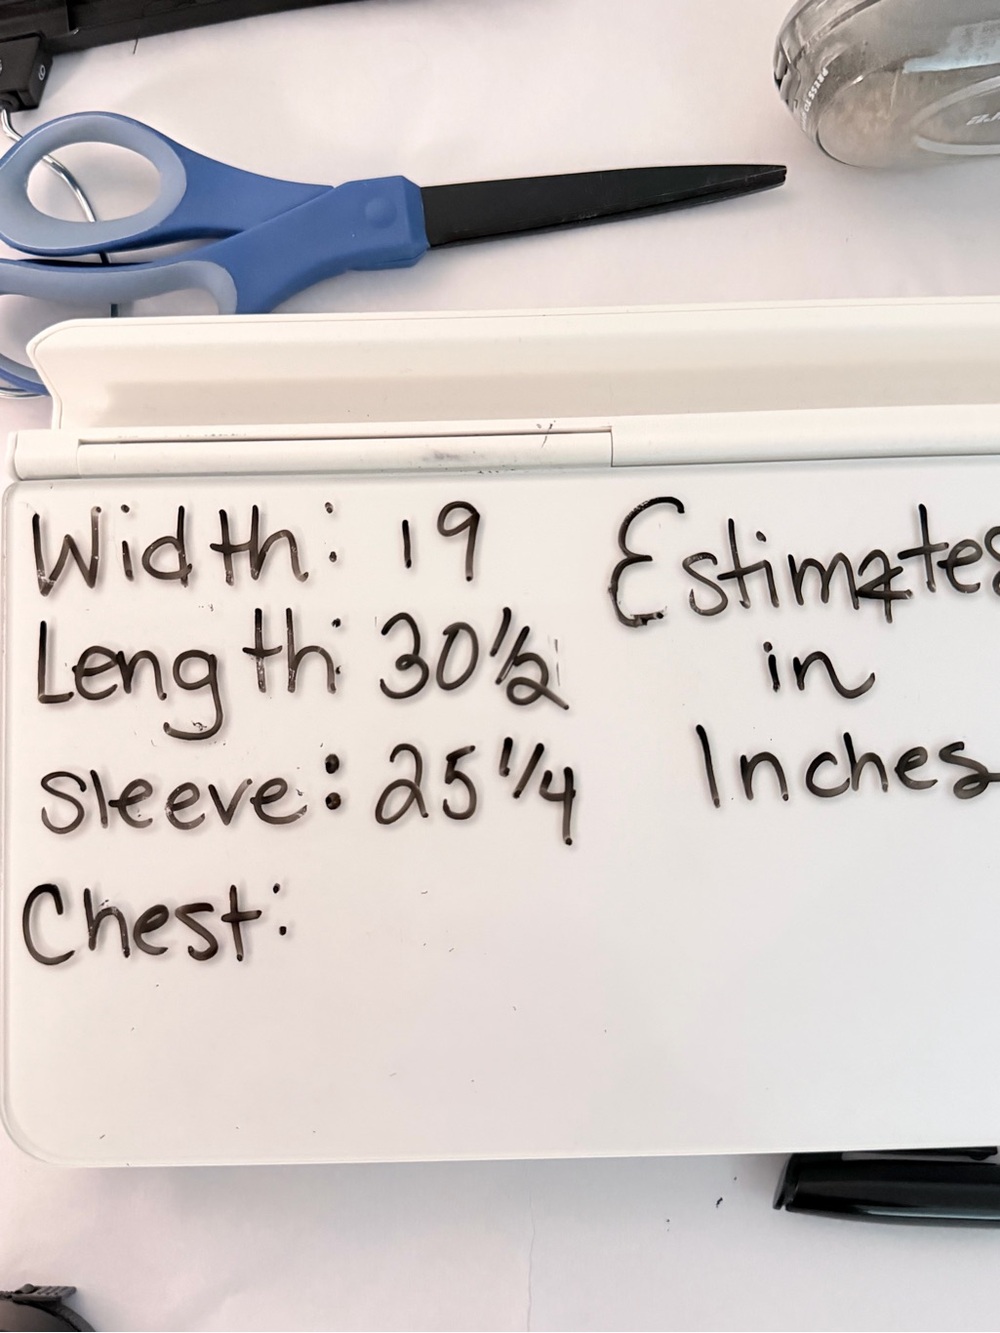 Width: 19
Length: 30 1/2
Sleeve: 25 1/4
Chest:
Estimates
in
Inches